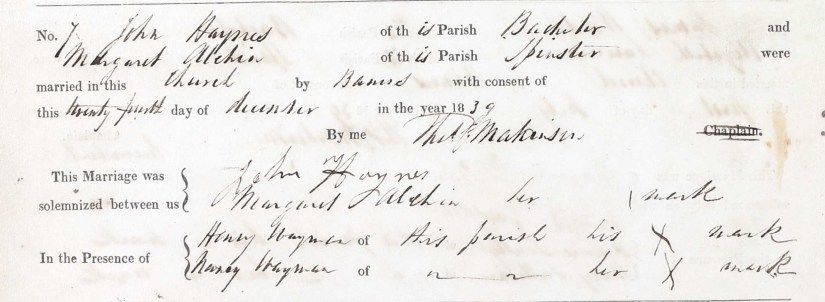 No. 7 John Haynes of this Parish Bachelor and
Margaret Alchin of this Parish Spinster were
married in this Church by Banns with consent of
this twenty fourth day of december in the year 1839
By me Thos. Makinson Chaplain.
This Marriage was solemnized between us { John Haynes
Margaret Alchin her | mark
In the Presence of { Henry Wayman of this parish his X mark
Nancy Wayman of " " her X mark